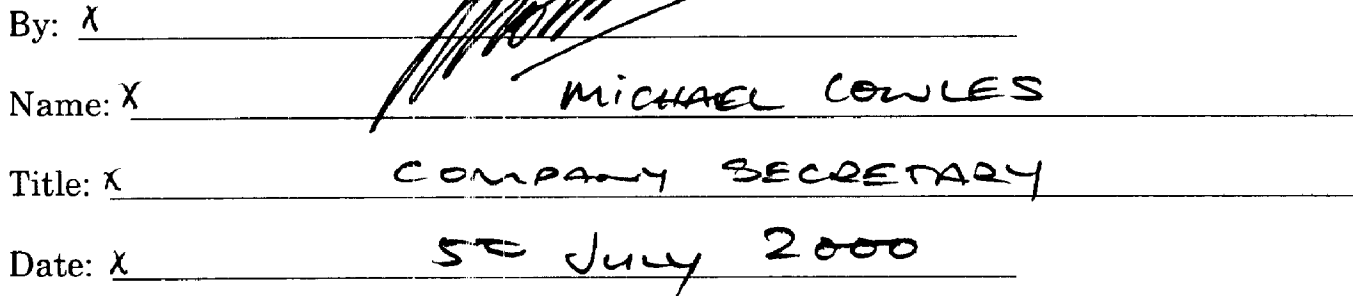 By: X
Name: X MICHAEL COWLES
Title: X COMPANY SECRETARY
Date: X 5th July 2000